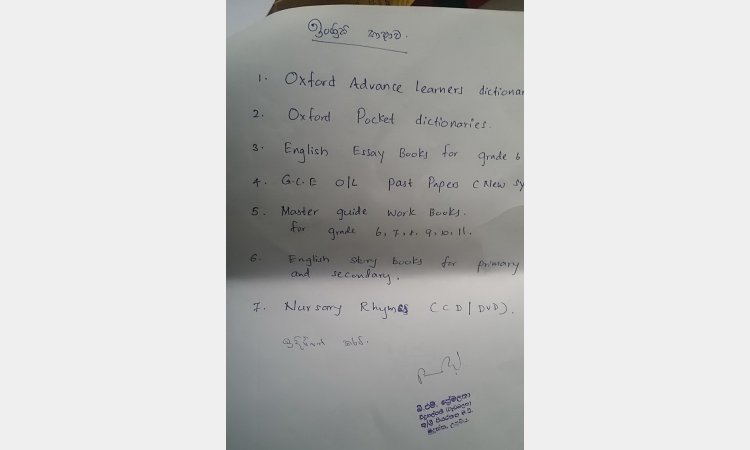 ඉංග්‍රීසි භාෂාව.
1. Oxford Advance Learners dictionar
2. Oxford Pocket dictionaries.
3. English Essay Books for grade 6
4. G.C.E O/L Past Papers (New Sy
5. Master guide Work Books.
for grade 6, 7, 8, 9, 10, 11.
6. English story books for primary
and secondary.
7. Nursary Rhymes (CD/DVD).